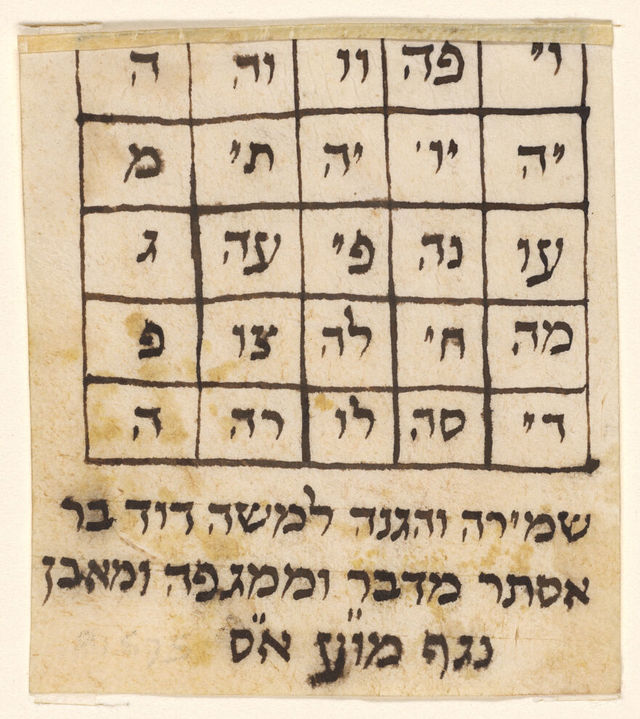 וי פה וו וה ה
יה יו יה תי מ
עו נה פי עה ג
מה חי לה צו פ
די סה לו רה ה
שמירה והגנה למשה דוד בר
אסתר מדבר וממגפה ומאבן
נגף מו״ע א״ס